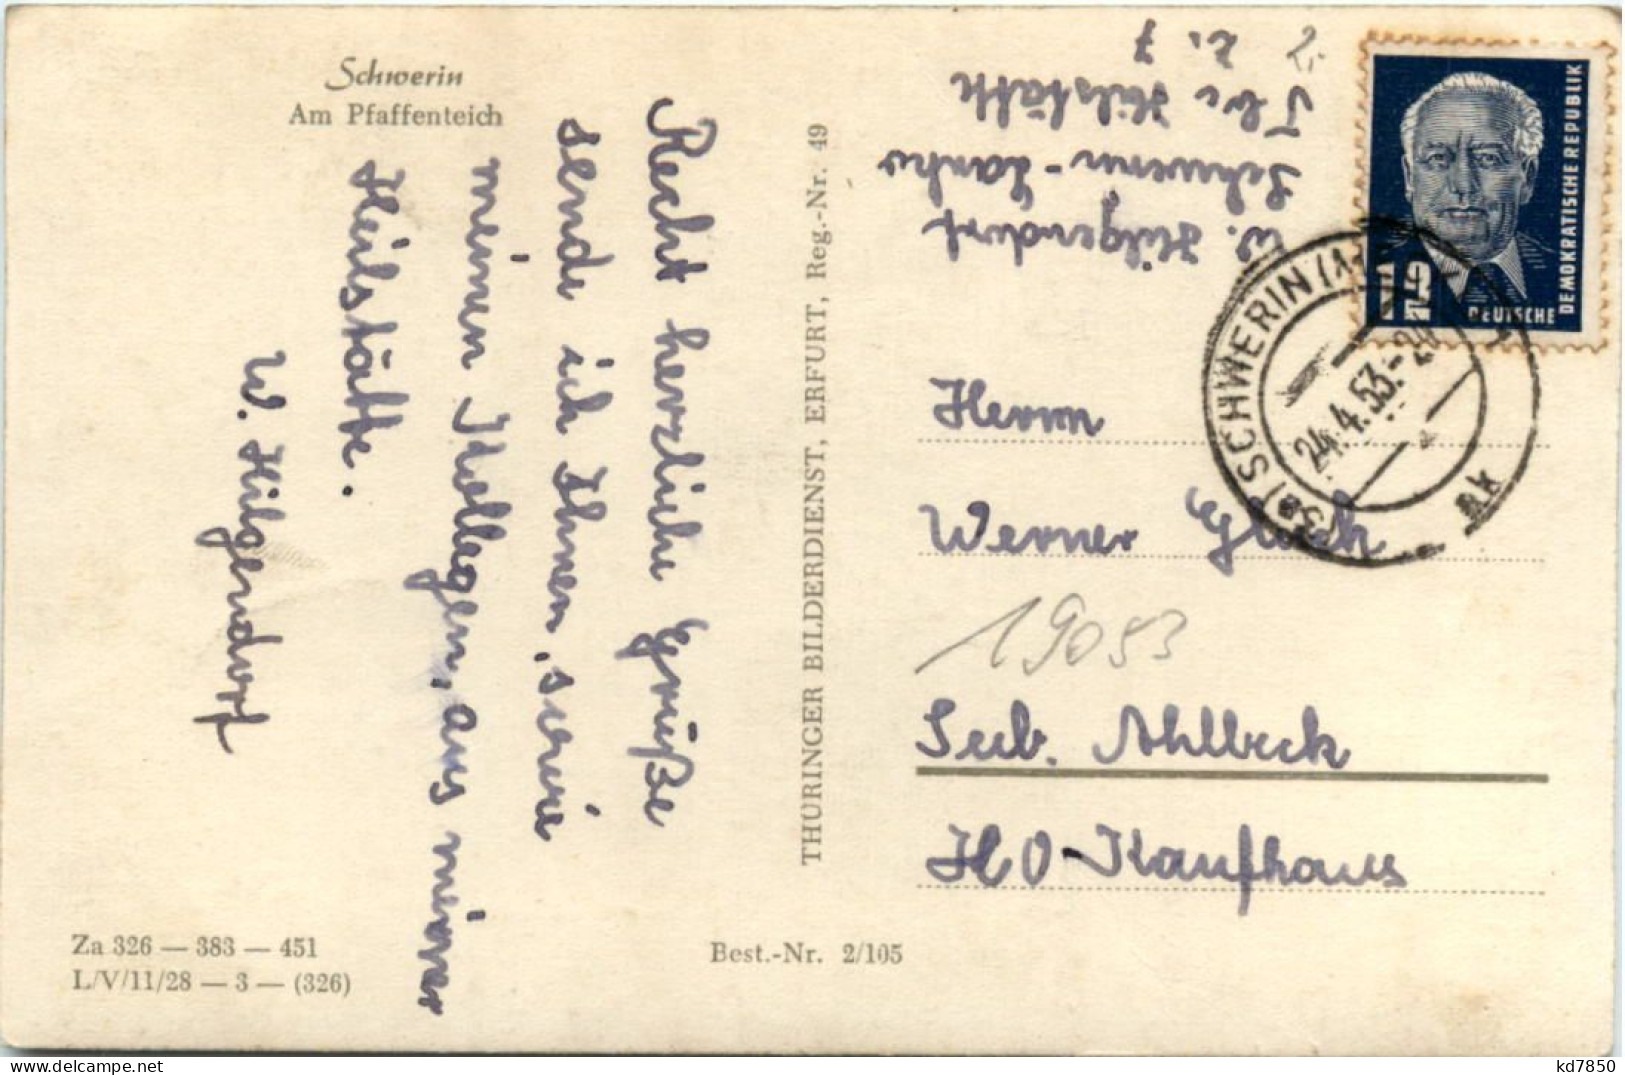 Schwerin
Am Pfaffenteich
Recht herzliche Grüße
sende ich Ihnen, sowie
meinen Kollegen, aus meiner
Heilstätte.
W. Hilgendorf
Za 326 — 383 — 451
L/V/11/28 — 3 — (326)
Best.-Nr. 2/105
THÜRINGER BILDERDIENST, ERFURT, Reg.-Nr. 49
W. Hilgendorf
Schwerin - Lankow
Tbc Heilstätte
2. Z. 7
12
DEUTSCHE
DEMOKRATISCHE REPUBLIK
SCHWERIN
24.4.53.-20
ak
Herrn
Werner Glück
19053
Seeb. Ahlbeck
HO-Kaufhaus
kd7850